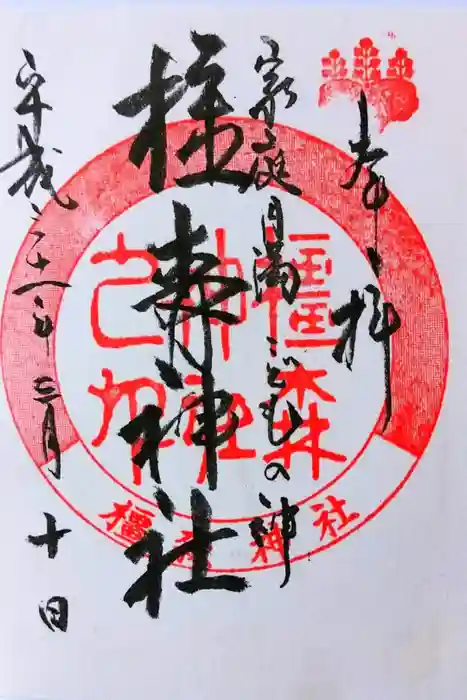 奉拝
家庭円満こどもの神
橿森神社
平成三十一年三月十日
橿森
神社
橿森神社